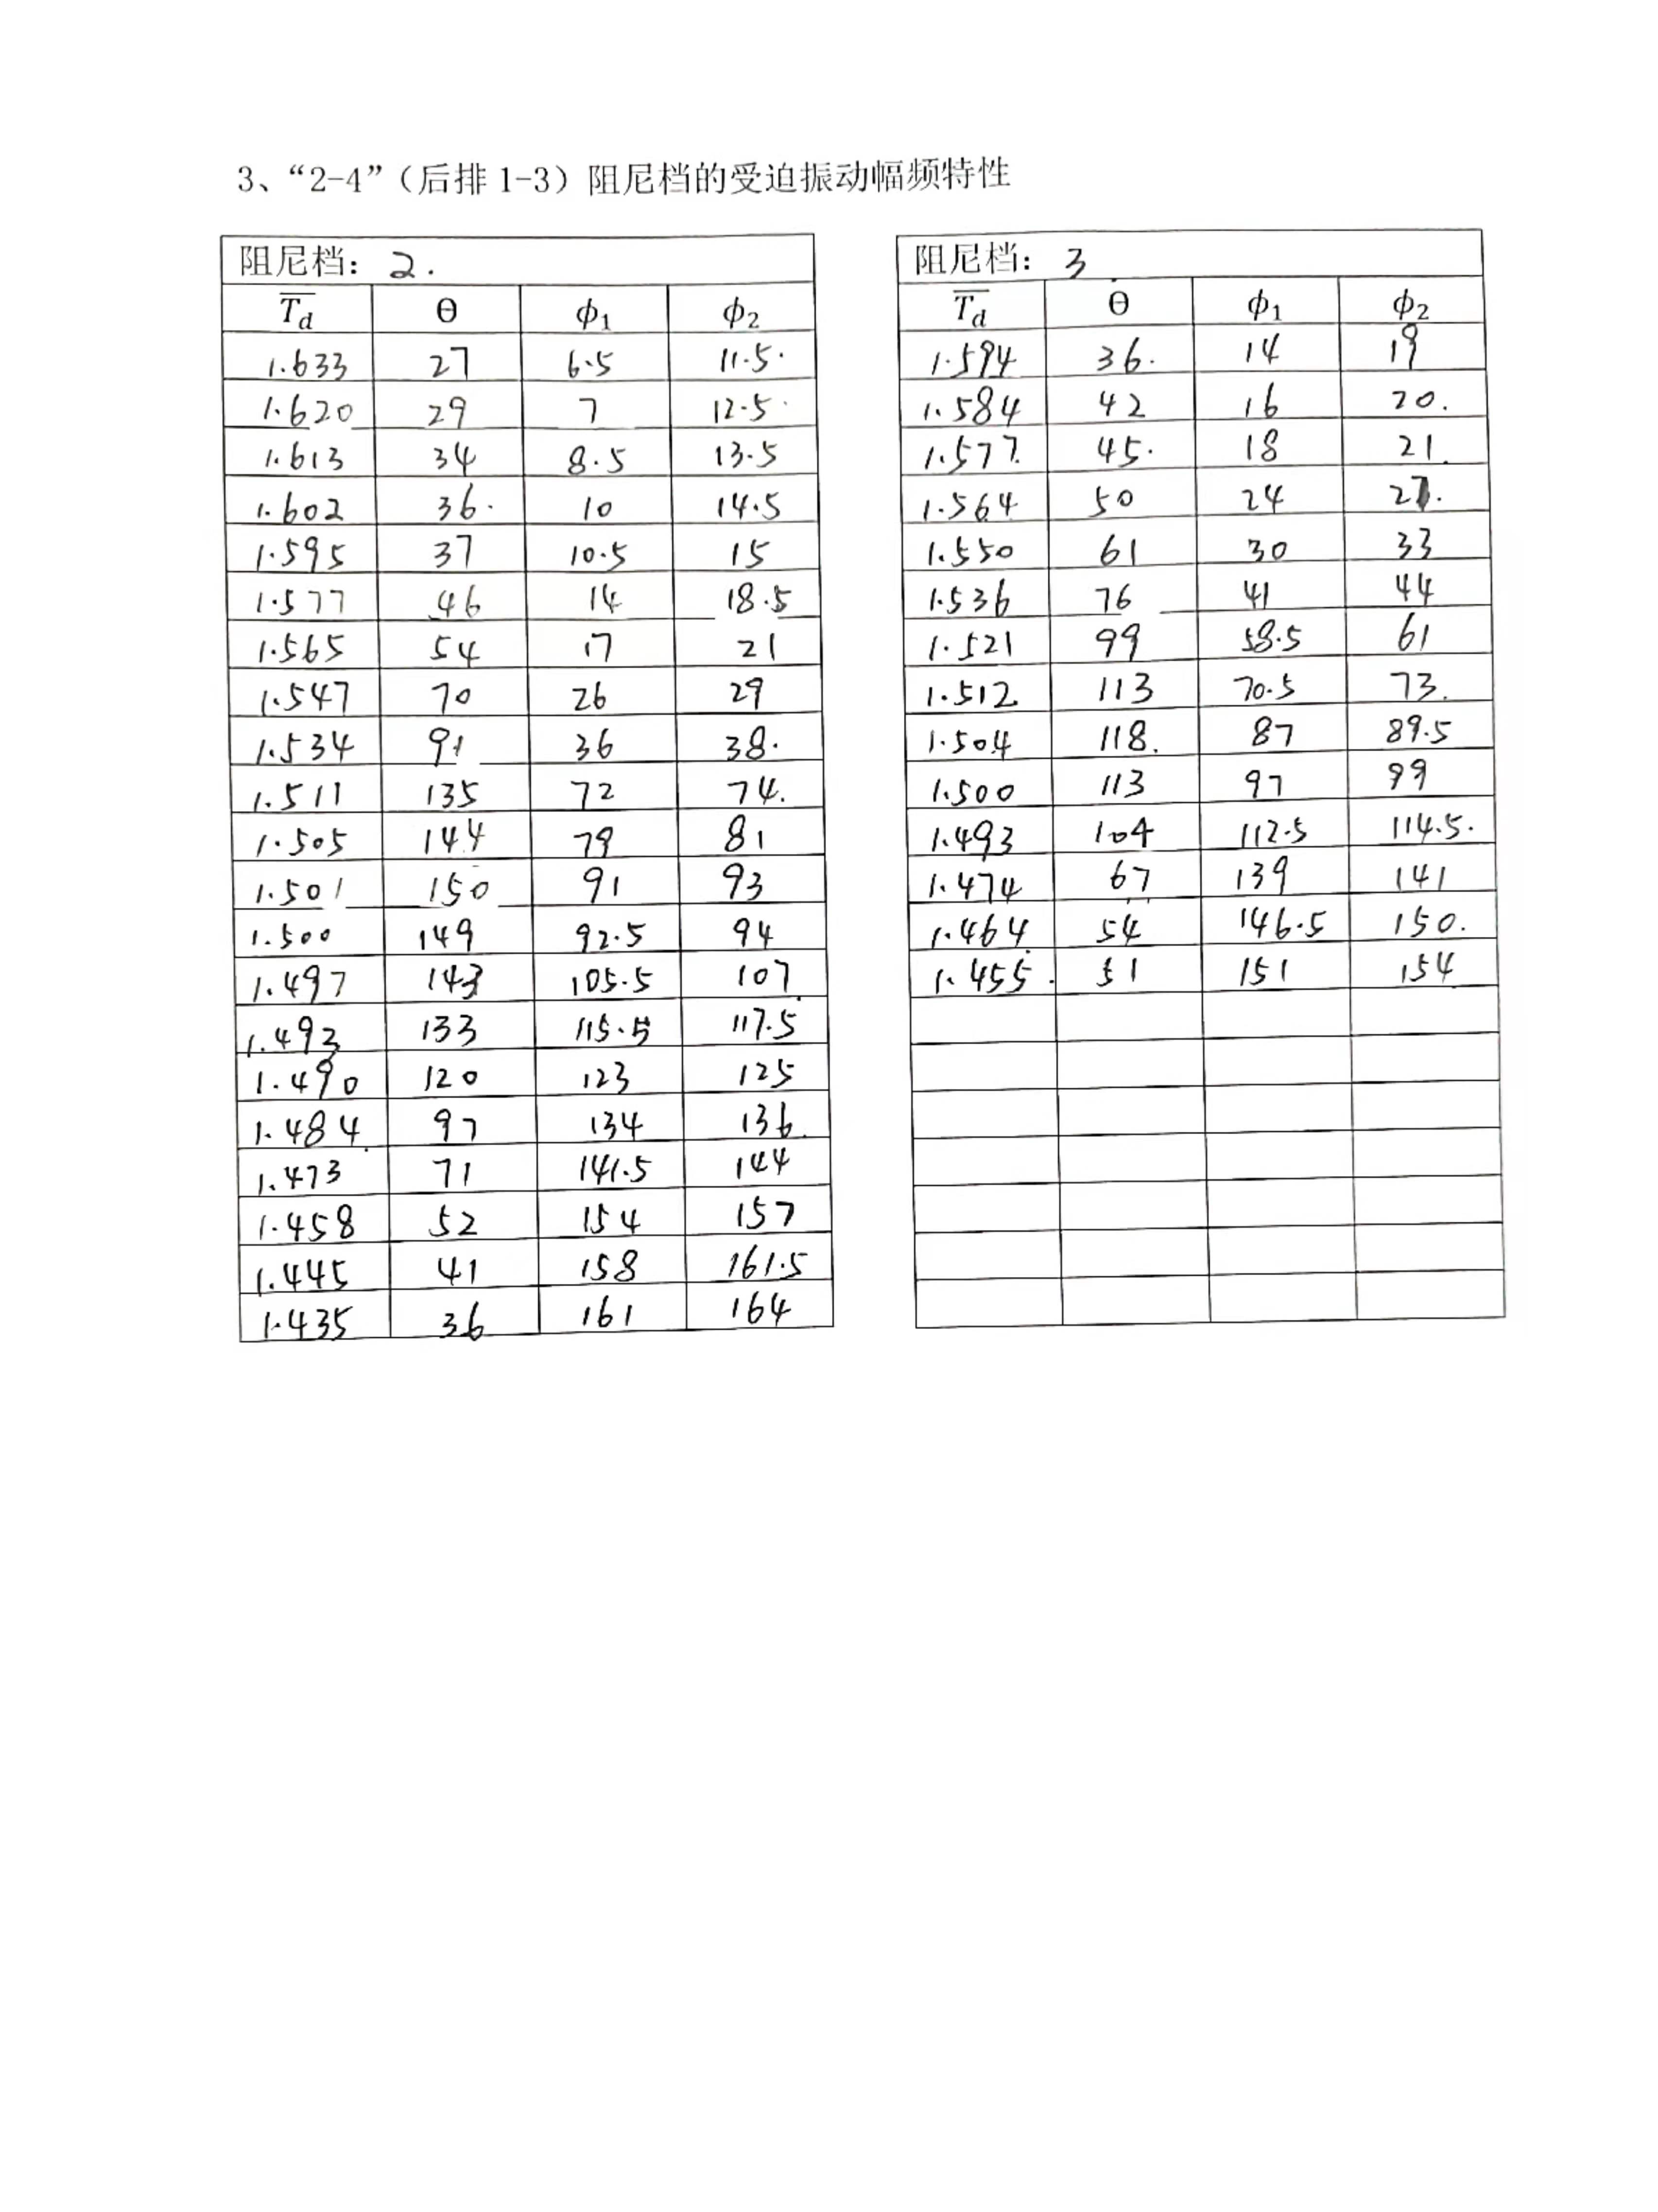 3、“2-4”（后排 1-3）阻尼档的受迫振动幅频特性
阻尼档： 2.
T̅d Θ ϕ1 ϕ2
1.633 27 6.5 11.5.
1.620 29 7 12.5.
1.613 34 8.5 13.5
1.602 36. 10 14.5
1.595 37 10.5 15
1.577 46 14 18.5
1.565 54 17 21
1.547 70 26 29
1.534 91 36 38.
1.511 135 72 74.
1.505 144 79 81
1.501 150 91 93
1.500 149 92.5 94
1.497 143 105.5 107
1.493 133 115.5 117.5
1.490 120 123 125
1.484 97 134 136
1.473 71 141.5 144
1.458 52 154 157
1.445 41 158 161.5
1.435 36 161 164
阻尼档： 3
T̅d Θ ϕ1 ϕ2
1.594 36. 14 19
1.584 42 16 20.
1.577 45. 18 21
1.564 50 24 27.
1.550 61 30 33
1.536 76 41 44
1.521 99 58.5 61
1.512 113 70.5 73.
1.504 118. 87 89.5
1.500 113 97 99
1.493 104 112.5 114.5.
1.474 67 139 141
1.464 54 146.5 150.
1.455. 51 151 154